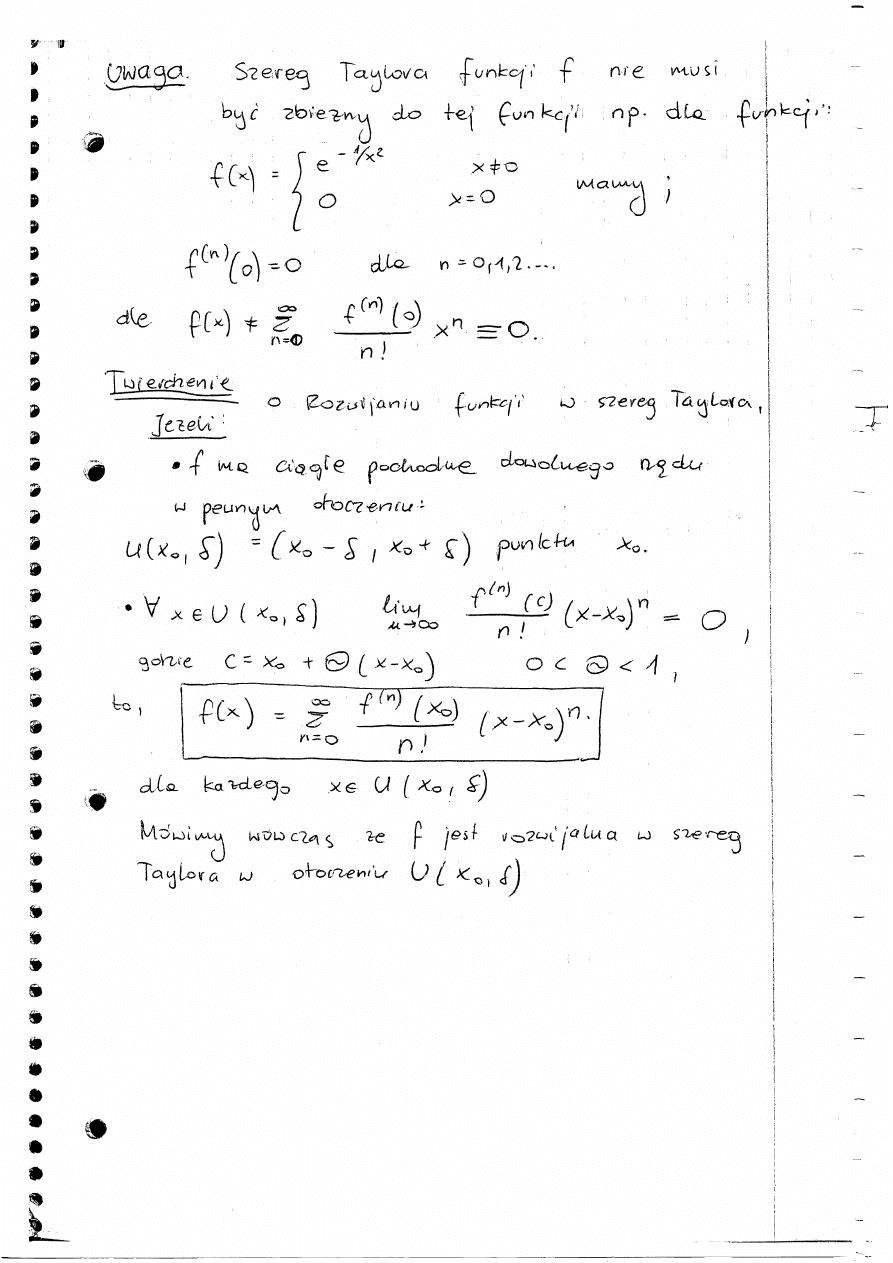 Uwaga. Szereg Taylora funkcji f nie musi
być zbieżny do tej funkcji np. dla funkcji:
f(x) = { e^{-1/x^2} x≠0
0 x=0 mamy ;
f^{(n)}(0)=0 dla n=0,1,2....
dle f(x) ≠ ∑_{n=0}^{∞} \frac{f^{(n)}(0)}{n!} x^n ≡ 0.
Twierdzenie
o Rozwijaniu funkcji w szereg Taylora,
Jeżeli:
• f ma ciągłe pochodne dowolnego rzędu
w pewnym otoczeniu:
U(x_0, δ) = (x_0 - δ, x_0 + δ) punktu x_0.
• ∀ x∈U(x_0, δ) lim_{n→∞} \frac{f^{(n)}(c)}{n!} (x-x_0)^n = 0,
gdzie c = x_0 + Θ(x-x_0) 0 < Θ < 1,
to, f(x) = ∑_{n=0}^{∞} \frac{f^{(n)}(x_0)}{n!} (x-x_0)^n.
dla każdego x∈ U(x_0, δ)
Mówimy wówczas że f jest rozwijalna w szereg
Taylora w otoczeniu U(x_0, δ)